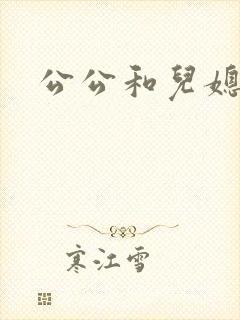 公公和兒媳
寒江雪